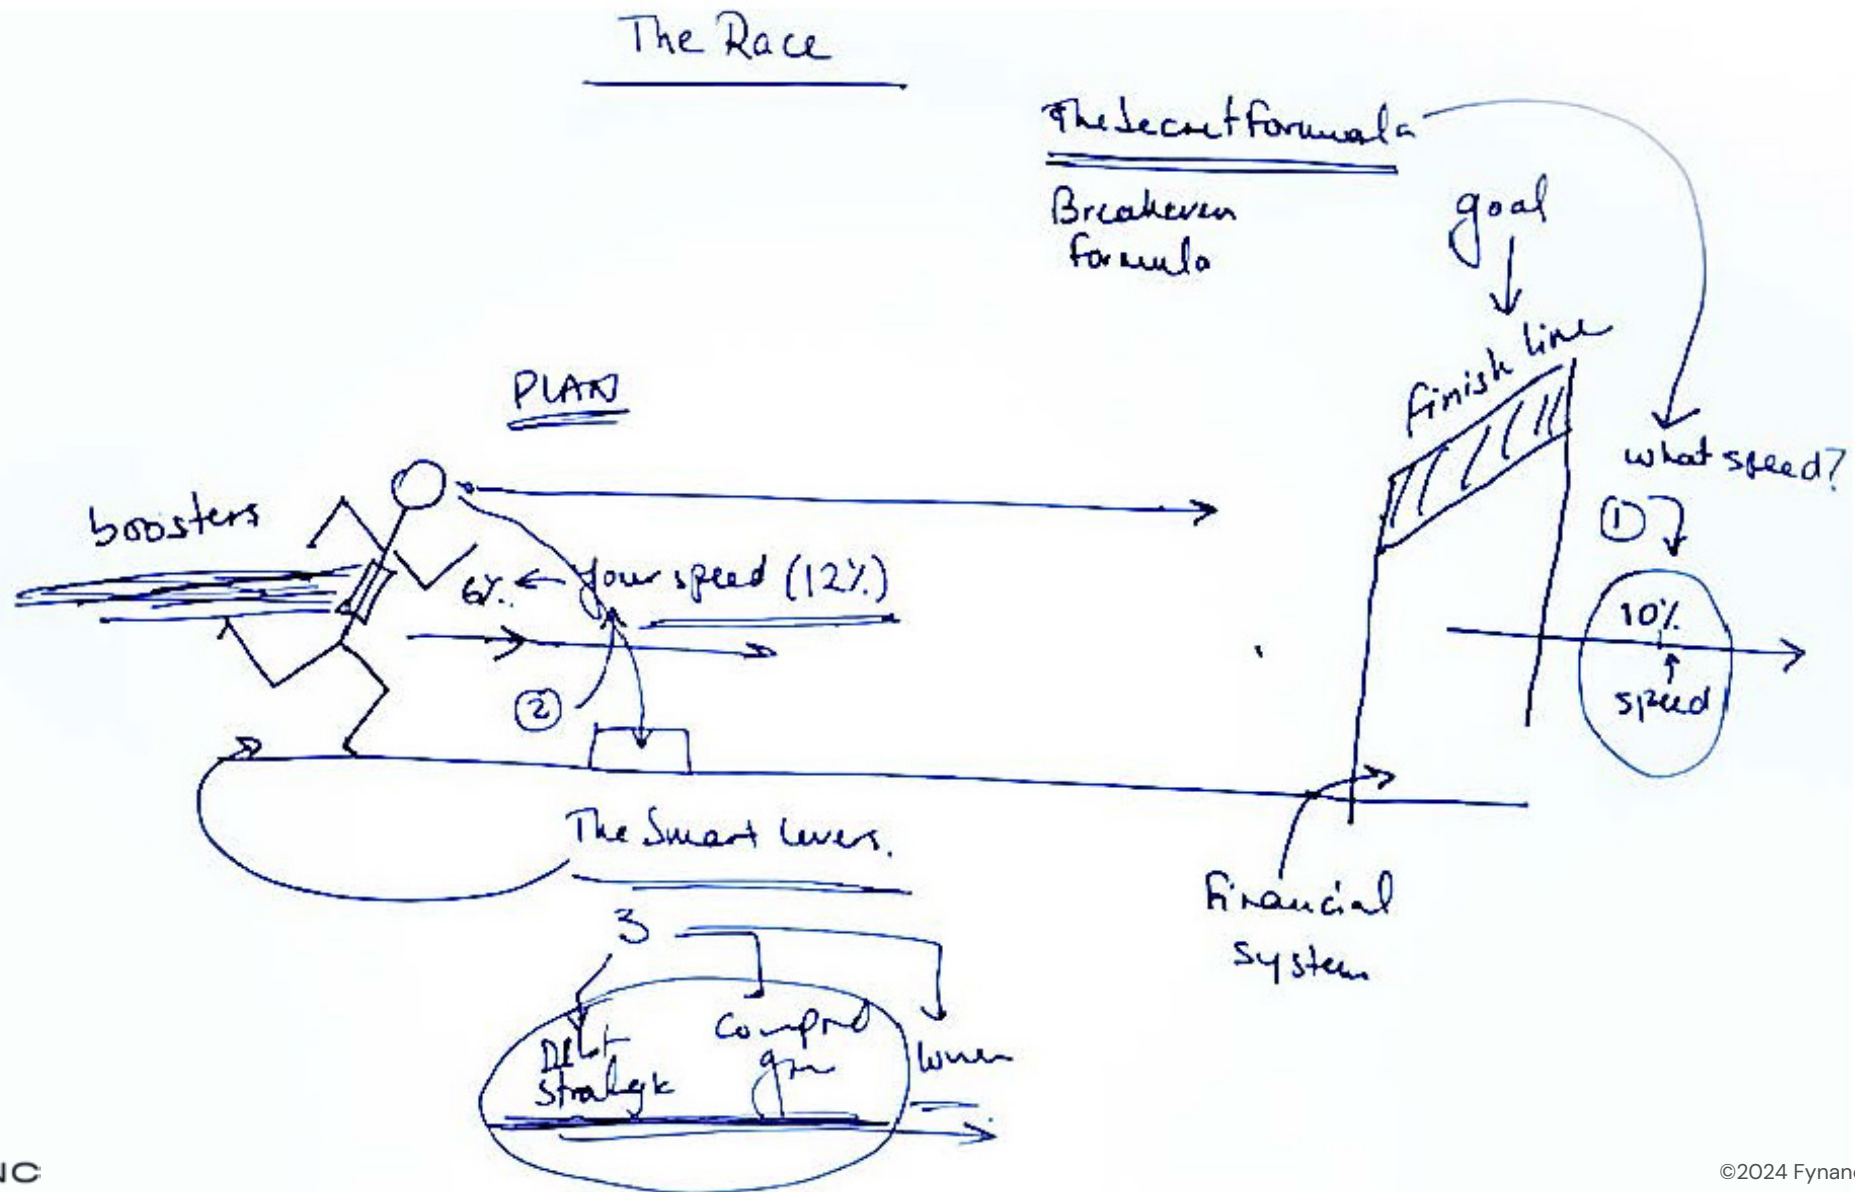 The Race
The Secret formula
Breakeven
formula
goal
finish line
what speed?
①
10%
speed
PLAN
boosters
6% ← your speed (12%)
②
The Smart levers.
3
Financial
system
Debt
strategic
when
NC
©2024 Fynanc